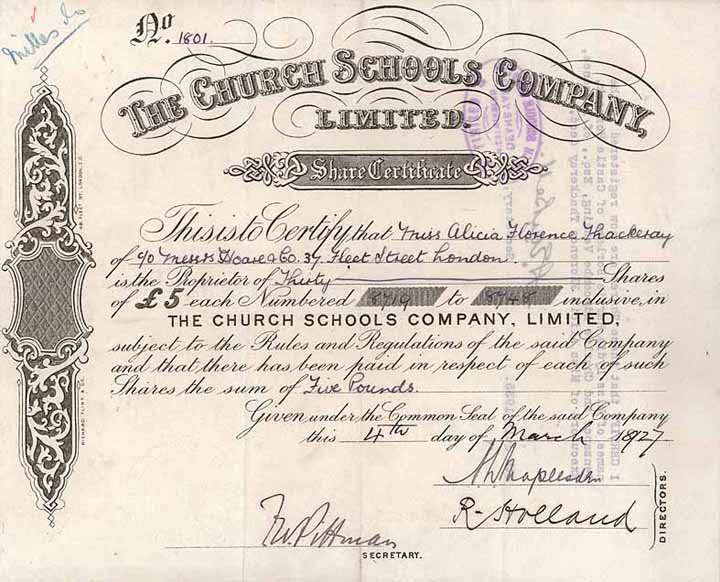 No. 1801.
THE CHURCH SCHOOLS COMPANY,
LIMITED.
Share Certificate
This is to Certify that Miss Alicia Florence Thackeray
of c/o Messrs Hoare & Co. 37, Fleet Street London
is the Proprietor of Thirty Shares
of £5 each Numbered 8719 to 8748 inclusive, in
THE CHURCH SCHOOLS COMPANY, LIMITED,
subject to the Rules and Regulations of the said Company
and that there has been paid in respect of each of such
Shares the sum of Five Pounds.
Given under the Common Seal of the said Company
this 4th day of March 1927
R. Holland
DIRECTORS.
SECRETARY.